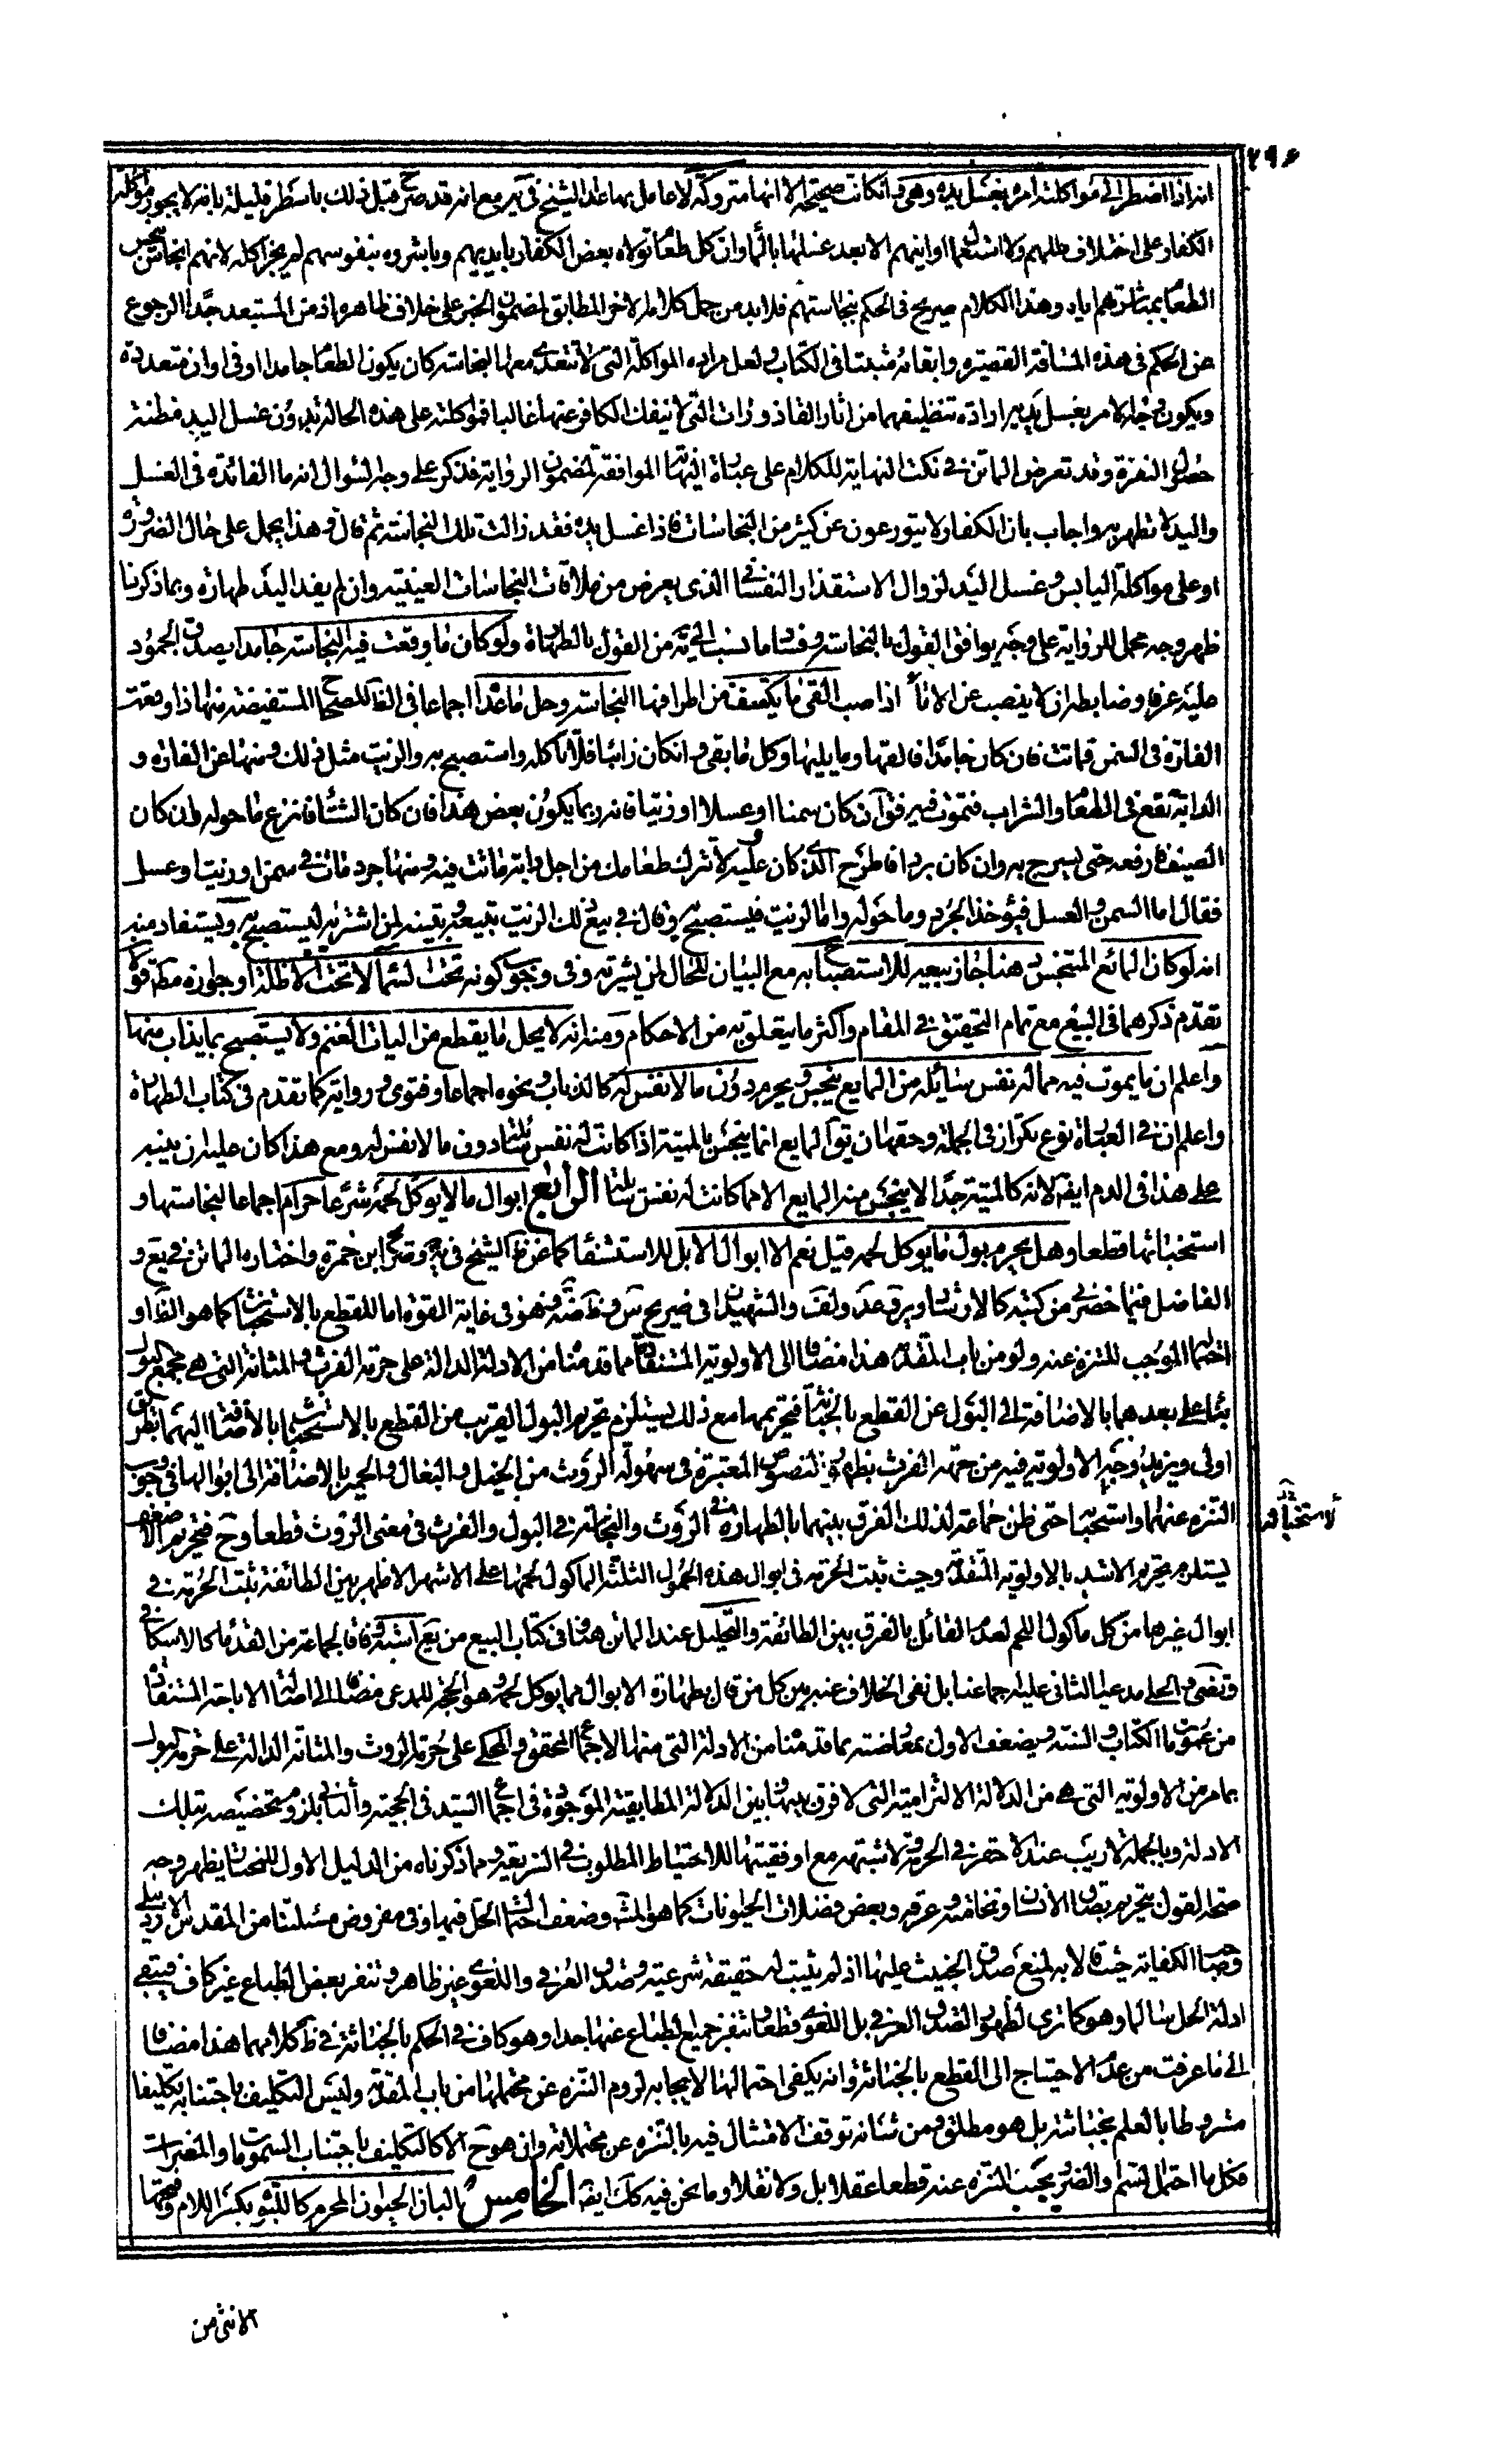 ٢٩٤
انه اذا اضطر الى مؤاكلته امره بغسل يده وهى وانكانت صحيحة الا انها متروكة لا عامل بها عدا الشيخ فى يه مع انه قد صرح قبل ذلك باسطر قليلة بانه لا يجوز مؤاكلة
الكفار على اختلاف مللهم ولا استعمال اوانيهم الا بعد غسلها بالماء وان كل طعام تولاه بعض الكفار بايديهم وباشروه بنفوسهم لم يجز اكله لانهم انجاس ينجس
الطعام بمباشرتهم اياه وهذا الكلام صريح فى الحكم بنجاستهم فلابد من حمل كلامه الاخر المطابق لمضمون الخبر على خلاف ظاهره اذ من المستبعد جدا الرجوع
عن الحكم فى هذه المسافة القصيرة وابقائه مثبتا فى الكتاب ولعل مراده المؤاكلة التى لا تتعدى معها النجاسة كان يكون الطعام جامدا او فى اوان متعددة
ويكون وجه الامر بغسل يديه ارادة تنظيفهما من اثار القاذورات التى لا ينفك الكافر عنها غالبا فمؤاكلته على هذه الحالة بدون غسل اليد مظنة
حصول النفرة وقد تعرض الماتن فى نكت النهاية للكلام على عبارة النهاية الموافقة لمضمون الرواية فذكر على وجه السؤال انه ما الفائدة فى الغسل
واليد لا تطهر به واجاب بان الكفار لا يتورعون عن كثير من النجاسات فاذا غسل يده فقد زالت تلك النجاسة ثم قال وهذا يحمل على حال الضرورة
او على مؤاكلة اليابس وغسل اليد لزوال الاستقذار النفسانى الذى يعرض من ملاقات النجاسات العينية وان لم يفد اليد طهارة وبما ذكرنا
ظهر وجه محمل للرواية على وجه يوافق القول بالنجاسة وفساد ما نسب الى يه من القول بالطهارة ولو كان ما وقعت فيه النجاسة جامدا يصدق الجمود
عليه عرفا وضابطه ان لا ينصب عن الاناء اذا صب القى ما يكتنف من اطرافها النجاسة وحل ما عدا اجماعا فى الظ للصحاح المستفيضة منها اذا وقعت
الفارة فى السمن فماتت فان كان جامدا فالقها وما يليها وكل ما بقى وانكان ذائبا فلا تاكله واستصبح به والزيت مثل ذلك ومنها عن الفارة و
الدابة تقع فى الطعام والشراب فتموت فيه فقال ان كان سمنا او عسلا او زيتا فانه ربما يكون بعض هذا فان كان الشتاء فانزع ما حوله وان كان
الصيف فارفعه حتى يسرج به وان كان بردا فاطرح الذى كان عليه ولا تترك طعامك من اجل دابة ماتت فيه ومنها جرذ مات فى سمن او زيت او عسل
فقال اما السمن والعسل فيؤخذ الجرذ وما حوله واما الزيت فيستصبح به وقال فى بيع ذلك الزيت تبيعه وتبينه لمن اشتراه ليستصبح به ويستفاد منه
انه لو كان المائع المتنجس دهنا جاز بيعه للاستصباح به مع البيان للحال لمن يشتريه وفى وجوب كونه تحت السماء لا تحت الاظلة او جوازه مطلقا قولان
تقدم ذكرهما فى البيع مع تمام التحقيق فى المقام واكثر ما يتعلق به من الاحكام ومنه انه لا يحل ما يقطع من اليات الغنم ولا يستصبح بما يذاب منها
واعلم ان ما يموت فيه مما له نفس سائلة من المايع ينجس ويحرم دون ما لا نفس له كالذباب ونحوه اجماعا وفتوى ورواية كما تقدم فى كتاب الطهارة
واعلم ان فى العبارة نوع تكرار فى الجملة وحقها ان يقول المايع انما ينجس بالميتة اذا كانت له نفس سائلة دون ما لا نفس له ومع هذا كان عليه ان ينبه
على هذا فى الدم ايضا لانه كالميتة جدا لا ينجس منه المايع الا ما كانت له نفس سائلة الرابع ابوال ما لا يوكل لحمه شرعا حرام اجماعا لنجاستها و
استخباثها قطعا وهل يحرم بول ما يوكل لحمه قيل نعم الا ابوال الابل للاستشفاء كما عن ظ الشيخ فى يه وصريح ابن حمزة واختاره الماتن فى يع و
الفاضل فيما حضرنى من كتبه كالارشاد وير وعد ولف والشهيدان فى صريح س وظ ضه وهو فى غاية القوة اما للقطع بالاستخباث كما هو الظ او
احتماله الموجب للتنزه عنه ولو من باب المقدمة هذا مضافا الى الاولوية المستفادة مما قدمنا من الادلة الدالة على حرمة الفرث والمثانة التى هى مجمع البول
بناء على بعدهما بالاضافة الى البول عن القطع بالخباثة فتحريمهما مع ذلك يستلزم تحريم البول القريب من القطع بالاستخباث بالاضافة اليهما بطريق
اولى ويزيد وجه الاولوية فيه من جهة الفرث بظهور النصوص المعتبرة فى سهولة الروث من الخيل والبغال والحمير بالاضافة الى ابوالها فى وجوب
التنزه عنهما واستحبابه حتى ظن جماعة لذلك الفرق بينهما بالطهارة فى الروث والنجاسة فى البول والفرث فى معنى الروث قطعا وح فتحريم الاضعف
يستلزم تحريم الاشد بالاولوية المتقدمة وحيث ثبت الحرمة فى ابوال هذه الحمول الثلثة الماكول لحمها على الاشهر الاظهر بين الطائفة ثبت الحرمة فى
ابوال غيرها من كل ماكول اللحم لعدم القائل بالفرق بين الطائفة والتحليل عند الماتن هنا وفى كتاب البيع من يع اشبه وفاقا لجماعة من القدماء كالاسكافى
والمرتضى والحلى مدعيا الثانى عليه اجماعنا بل نفى الخلاف عنه بين كل من قال بطهارة الابوال مما يوكل لحمه وهو الحجة للمدعى مضافا الى اصالة الاباحة المستفادة
من عمومات الكتاب والسنة ويضعف الاول بمعارضته بما قدمنا من الادلة التى منها الاجماع المحقق والمحكى على حرمة الروث والمثانة الدالة على حرمة البول
بما مر من الاولوية التى هى من الدلالة الالتزامية التى لا فرق بينها وبين الدلالة المطابقية الموجودة فى اجماع السيد فى الحجية والثانى بلزوم تخصيصه بتلك
الادلة وبالجملة لا ريب عند الاحقر فى الحرمة ولا شبهة مع اوفقيتها للاحتياط المطلوب فى الشريعة ومما ذكرناه من الدليل الاول للمختار يظهر وجه
صحة القول بتحريم بصاق الانسان ونخامته وعرقه وبعض فضلات الحيوانات كما هو المش وضعف احتمال الحل فيها وفى مفروض مسئلتنا من المقدس الاردبيلى
وصاحب الكفاية حيث قالا به لمنع صدق الخبيث عليها اذ لم يثبت له حقيقة شرعية وصدق العرفى واللغوى غير ظاهر وتنفر بعض الطباع غير كاف فيبقى
ادلة الحل سالما وهو كما ترى لظهور الصدق العرفى بل اللغوى قطعا وتنفر جميع الطباع عنها جدا وهو كاف فى الحكم بالخباثة فى ظ كلامهما هذا مضافا
الى ما عرفت من عدم الاحتياج الى القطع بالخباثة وانه يكفى احتمالها لايجابه لزوم التنزه عن محتملها من باب المقدمة وليس التكليف باجتنابه تكليفا
مشروطا بالعلم بخباثته بل هو مطلق ومن شانه توقف الامتثال فيه بالتنزه عن محتملاته وان هو ح الا كالتكليف باجتناب السموم والمضرات
فكل ما احتمل السم والضرر يجب التنزه عنه قطعا عقلا بل ونقلا وما نحن فيه كك ايضا الخامس البان الحيوان المحرم كاللبوة بكسر اللام وفتحها
لاستخباثه
الانثى من